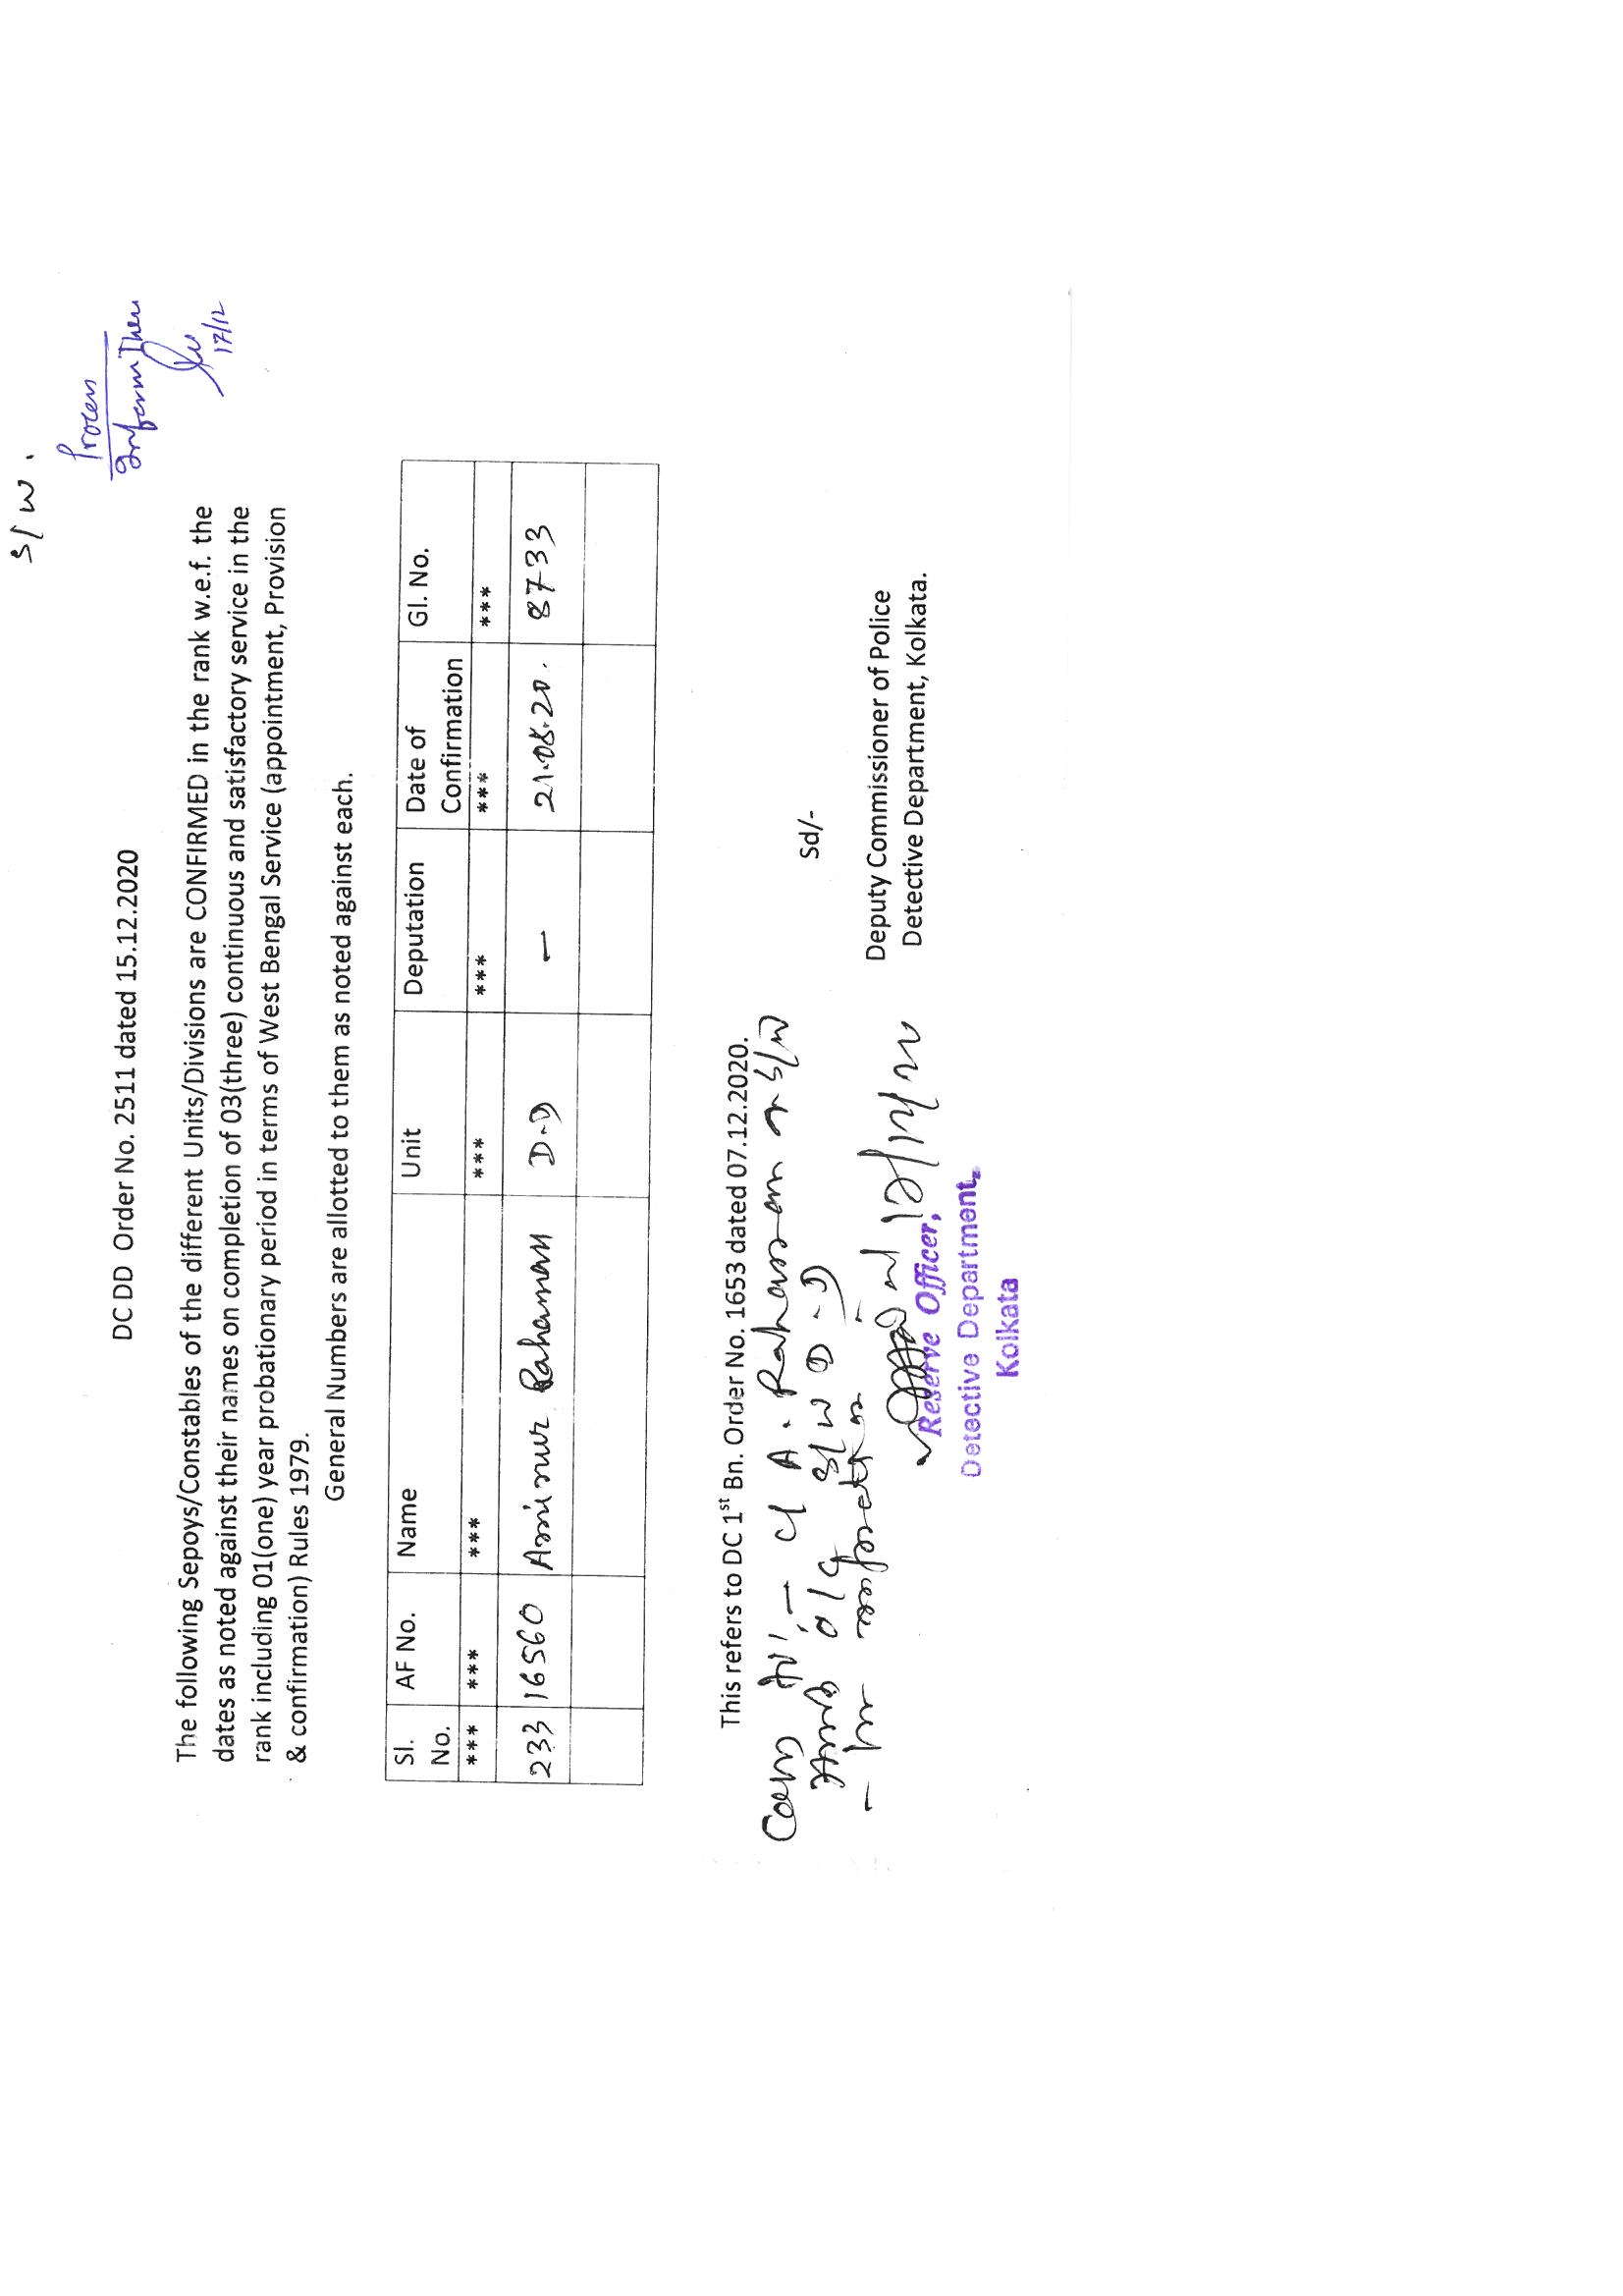 S/W.
Process
Inform Them
17/12
DC DD Order No. 2511 dated 15.12.2020
The following Sepoys/Constables of the different Units/Divisions are CONFIRMED in the rank w.e.f. the
dates as noted against their names on completion of 03(three) continuous and satisfactory service in the
rank including 01(one) year probationary period in terms of West Bengal Service (appointment, Provision
& confirmation) Rules 1979.
General Numbers are allotted to them as noted against each.
Sl. No. AF No. Name Unit Deputation Date of Confirmation Gl. No.
*** *** *** *** *** *** ***
233 16560 Aminur Rahaman D.D — 21.08.20. 8733
This refers to DC 1st Bn. Order No. 1653 dated 07.12.2020.
A. Rahaman S/W
O/C S/W D.D
Sd/-
Deputy Commissioner of Police
Detective Department, Kolkata.
Reserve Officer,
Detective Department,
Kolkata